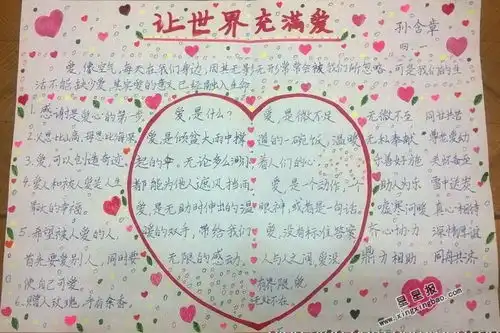 让世界充满爱
孙含章
四.一
爱,像空气,每天在我们身边,因其无影无形常常会被我们所忽略,可是我们的生
活不能缺少爱,其实爱的意义已经融入生命
1.感谢是爱心的第一步
2.父恩比山高,母恩比海深
3.爱可以创造奇迹
4.爱人和被人爱是人生
最大的幸福。
5.希望被人爱的人,
首先要爱别人,同时要
使自己可爱。
6.赠人玫瑰,手有余香。
爱是什么?
爱是倾盆大雨中撑
起的伞,无论多么
都能为他人遮风挡雨
爱,是无助时伸出的温
暖的双手,带给我们
无限的感动。
爱是微不足
道的一碗饭,温暖
着人们的心
爱是一个动作,一个
眼神,或者是一句话。
爱没有标准答案
人与人之间,爱没
有界限,爱
无处不在
无微不至 同甘共苦
无私奉献 尊老爱幼
乐善好施
助人为乐 雪中送炭
嘘寒问暖 真心相待
齐心协力 深情厚谊
鼎力相助 同舟共济
星星报
www.xingxingbao.com